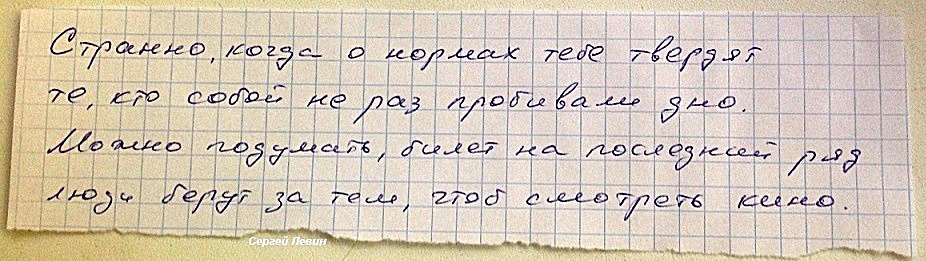 Странно, когда о нормах тебе твердят
те, кто собой не раз пробивали дно.
Можно подумать, билет на последний ряд
люди берут за тем, чтоб смотреть кино.
Сергей Левин